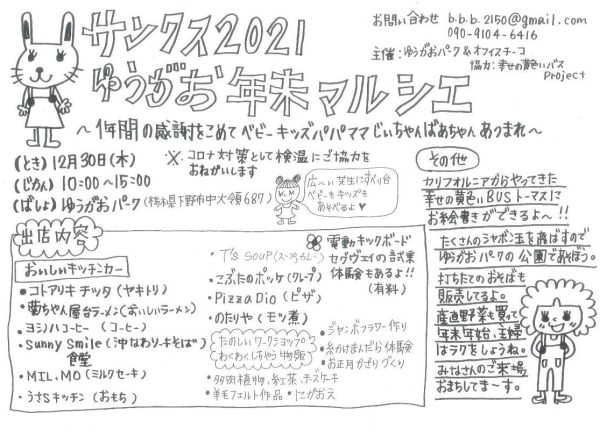 サンクス2021
ゆうがお年末マルシェ
お問い合わせ b.b.b.2150@gmail.com
090-9104-6416
主催:ゆうがおパーク&オフィスチーコ
協力:幸せの黄色いバス
Project
〜1年間の感謝をこめてベビーキッズパパママじいちゃんばあちゃんあつまれ〜
(とき)12月30日(木)
(じかん)10:00〜15:00
(ばしょ)ゆうがおパーク(栃木県下野市中大領687)
※コロナ対策として検温にご協力を
おねがいします
広〜い芝生にすべり台
ベビーもキッズも
あそべるよ♥
出店内容
おいしいキッチンカー
・コトアリキチッタ(ヤキトリ)
・菊ちゃん屋台ラーメン(おいしいラーメン)
・ヨシノハコーヒー(コーヒー)
・Sunny Smile(沖なわソーキそば)
食堂
・MIL.MO(ミルクセーキ)
・うさSキッチン(おもち)
・T's Soup(スープカレー)
・こぶたのポッケ(クレープ)
・Pizza Dio(ピザ)
・のたりや(モツ煮)
たのしいワークショップ
わくわくしちゃう物販
・多肉植物、紅茶、チーズケーキ
・羊毛フェルト作品・にがおえ
電動キックボード
セグウェイの試乗
体験もあるよ!!
(有料)
・ジャンボフラワー作り
・糸かけまんだら体験
・お正月かざりづくり
その他
カリフォルニアからやってきた
幸せの黄色いBUSトーマスに
お絵書きができるよ〜!!
たくさんのシャボン玉を産ばすので
ゆうがおパークの公園であそぼう。
打ちたてのおそばも
販売してるよ。
産直野菜も買って
年末年始、主婦
はラクをしようね。
みなさんのご来場
おまちしてま〜す。